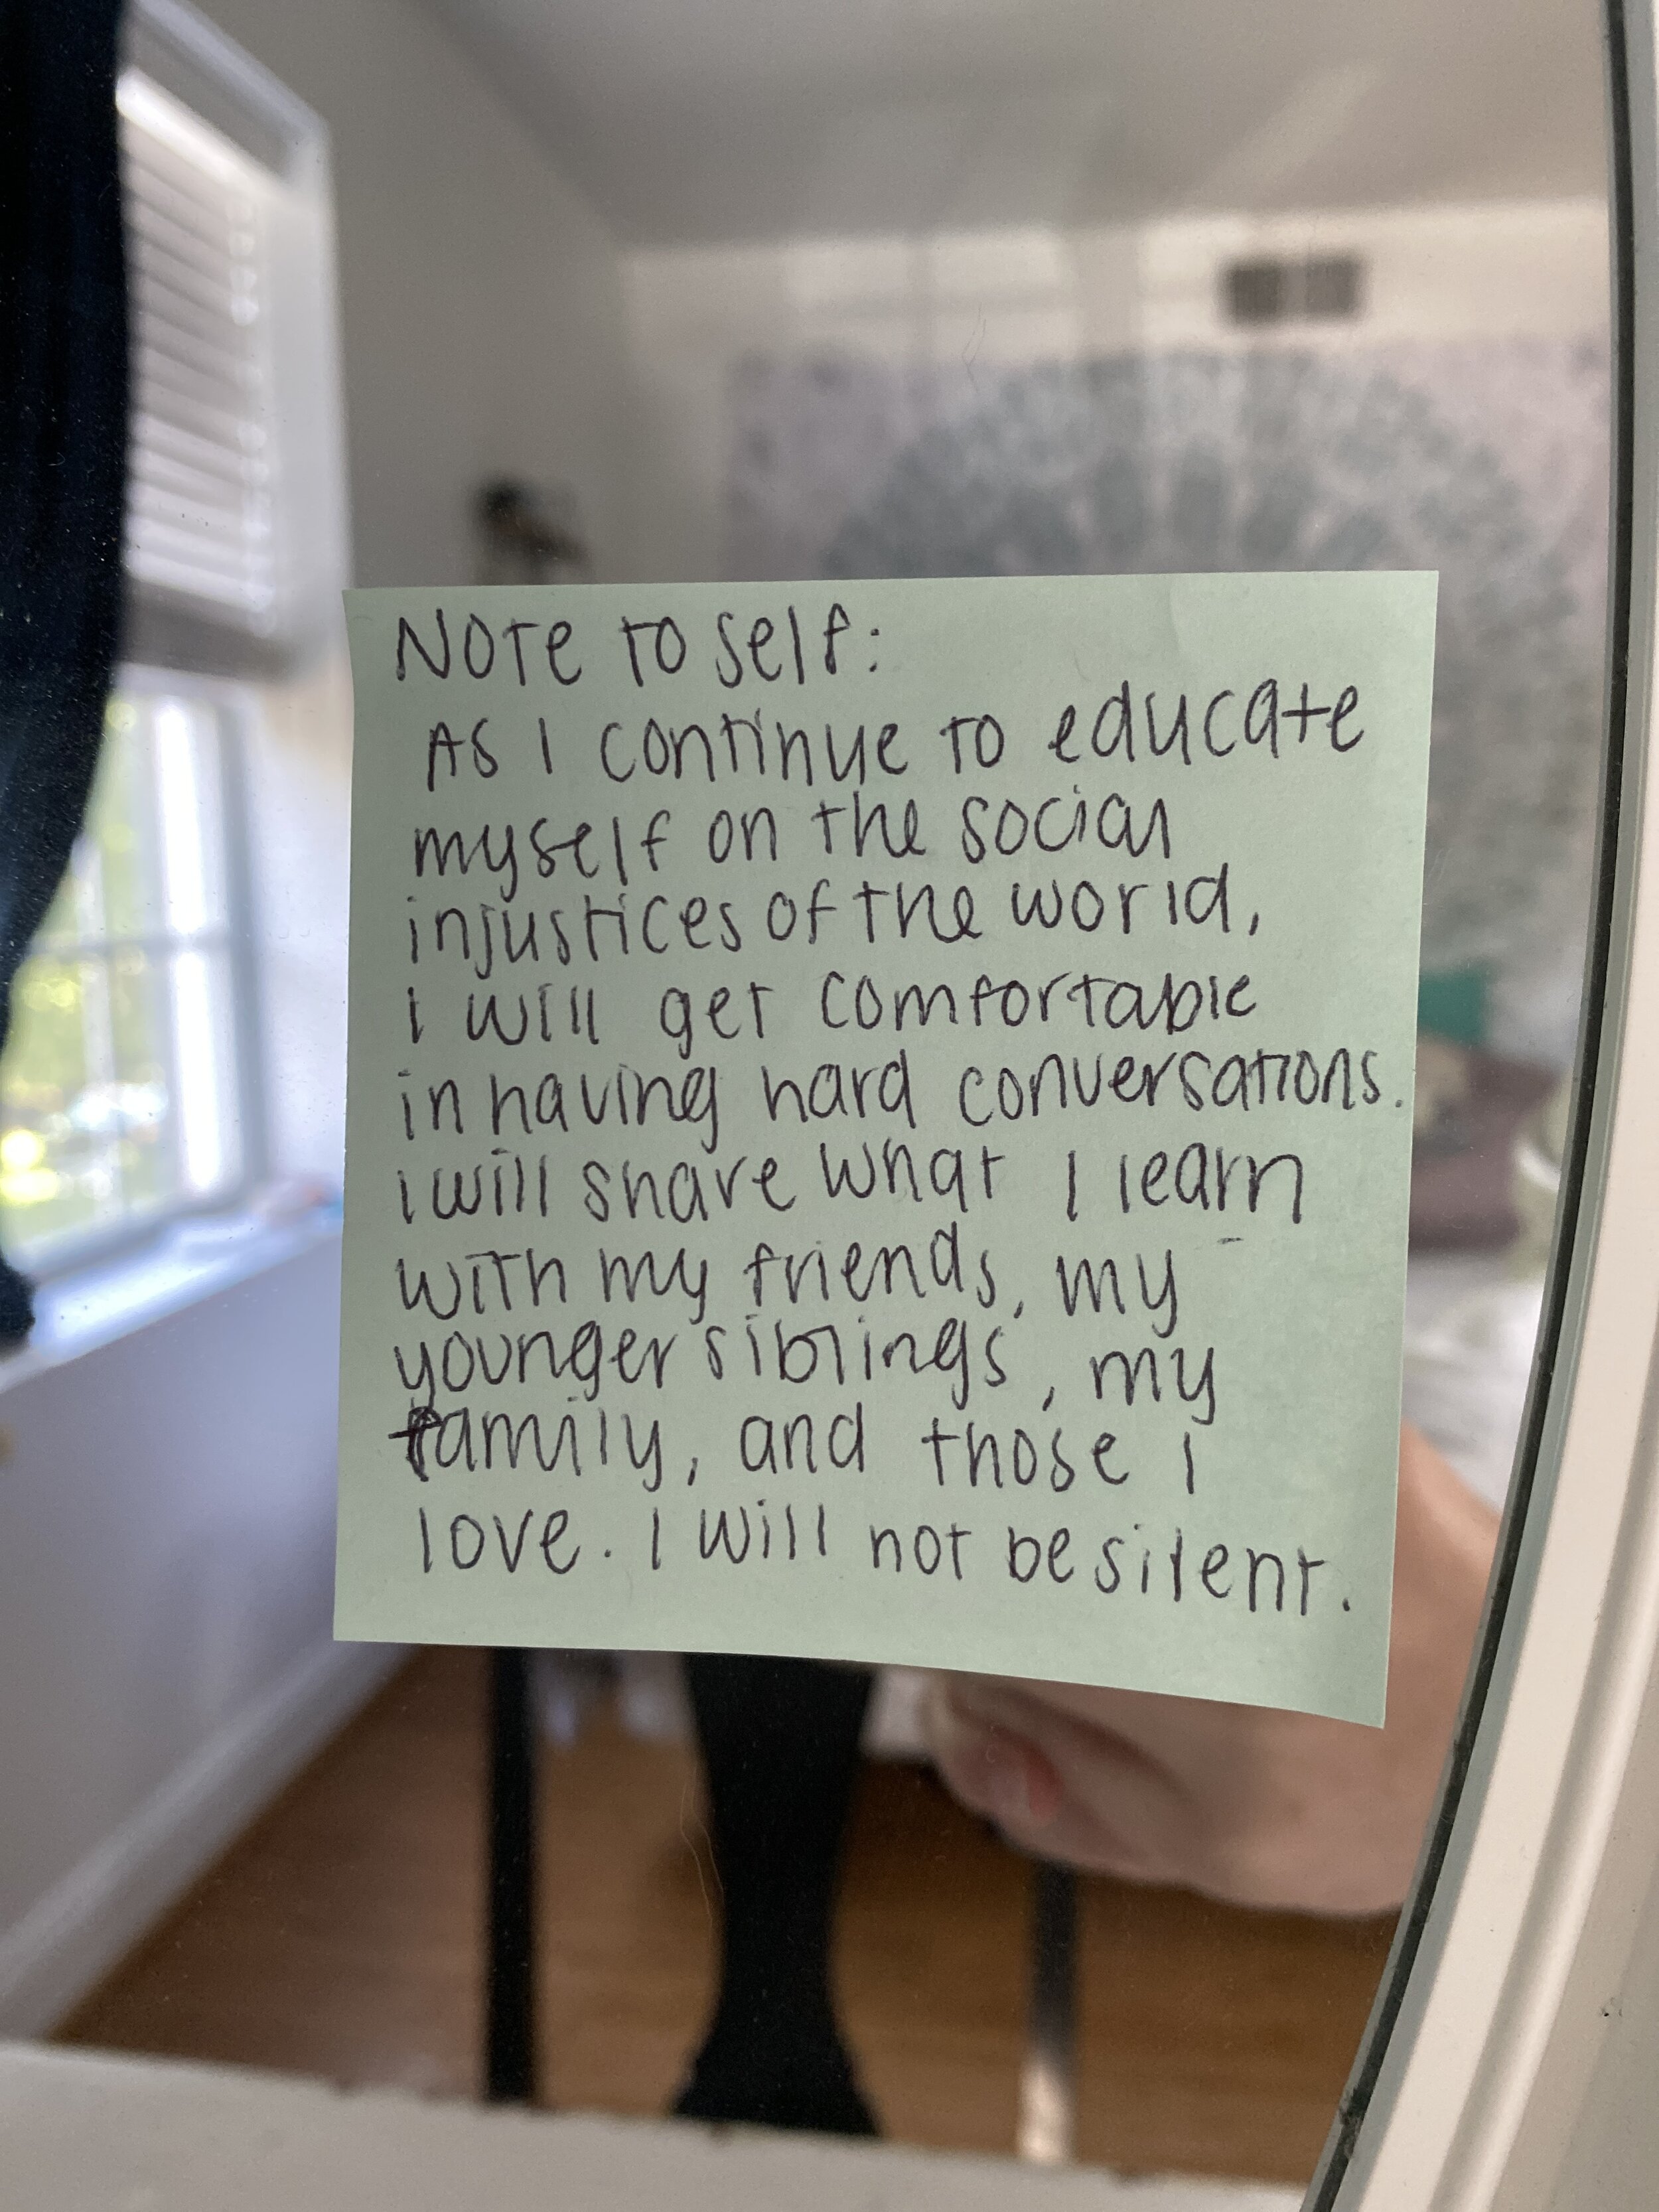 Note to self:
As I continue to educate
myself on the social
injustices of the world,
I will get comfortable
in having hard conversations.
I will share what I learn
with my friends, my
younger siblings, my
family, and those I
love. I will not be silent.